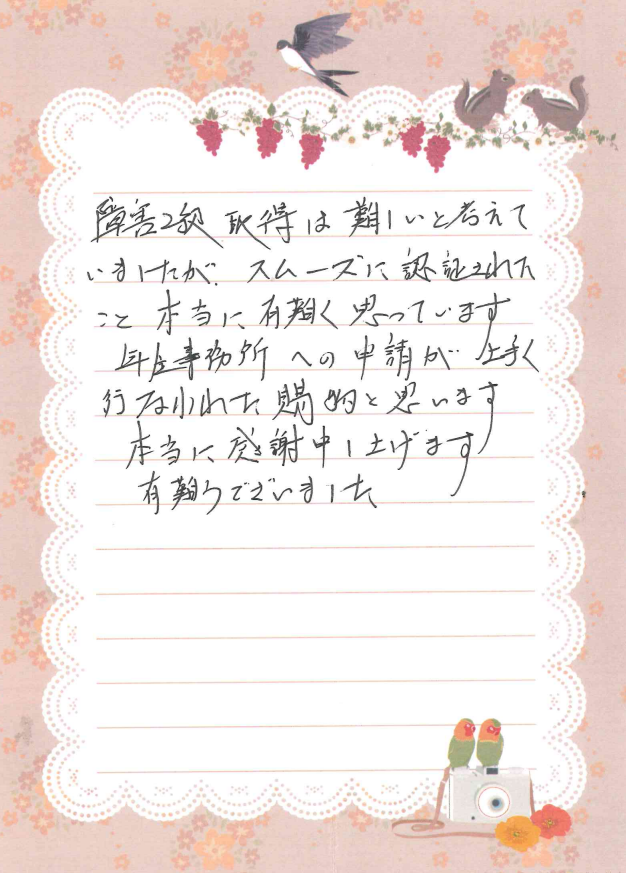 障害2級 取得は 難しいと考えて
いましたが、スムーズに 認証された
こと 本当に 有難く 思っています
年金事務所 への 申請が 上手く
行なわれた 賜物と思います
本当に感謝申し上げます
有難うございました